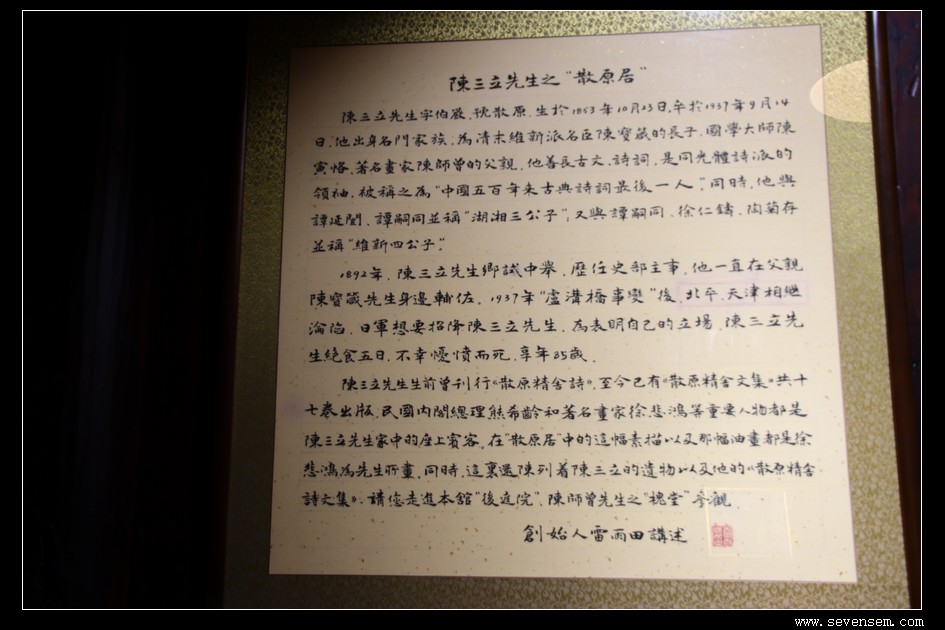 陳三立先生之“散原居”
陳三立先生字伯嚴，號散原，生於1853年10月23日，卒於1937年9月14
日，他出身名門家族，為清末維新派名臣陳寶箴的長子，國學大師陳
寅恪、著名畫家陳師曾的父親，他善長古文、詩詞，是同光體詩派的
領袖，被稱之為“中國五百年來古典詩詞最後一人”，同時，他與
譚延闓、譚嗣同並稱“湖湘三公子”；又與譚嗣同、徐仁鑄、陶菊存
並稱“維新四公子”。
1892年，陳三立先生鄉試中舉，歷任史部主事，他一直在父親
陳寶箴先生身邊輔佐，1937年“盧溝橋事變”後，北平、天津相繼
淪陷，日軍想要招降陳三立先生，為表明自己的立場，陳三立先
生絕食五日，不幸憂憤而死，享年85歲。
陳三立先生生前曾刊行《散原精舍詩》，至今已有《散原精舍文集》共十
七卷出版，民國內閣總理熊希齡和著名畫家徐悲鴻等重要人物都是
陳三立先生家中的座上賓客，在“散原居”中的這幅素描以及那幅油畫都是徐
悲鴻為先生所畫，同時，這裏還陳列着陳三立的遺物以及他的《散原精舍
詩文集》。請您走進本館“後庭院”，陳師曾先生之“槐堂”參觀。
創始人雷雨田講述
www.sevensem.com